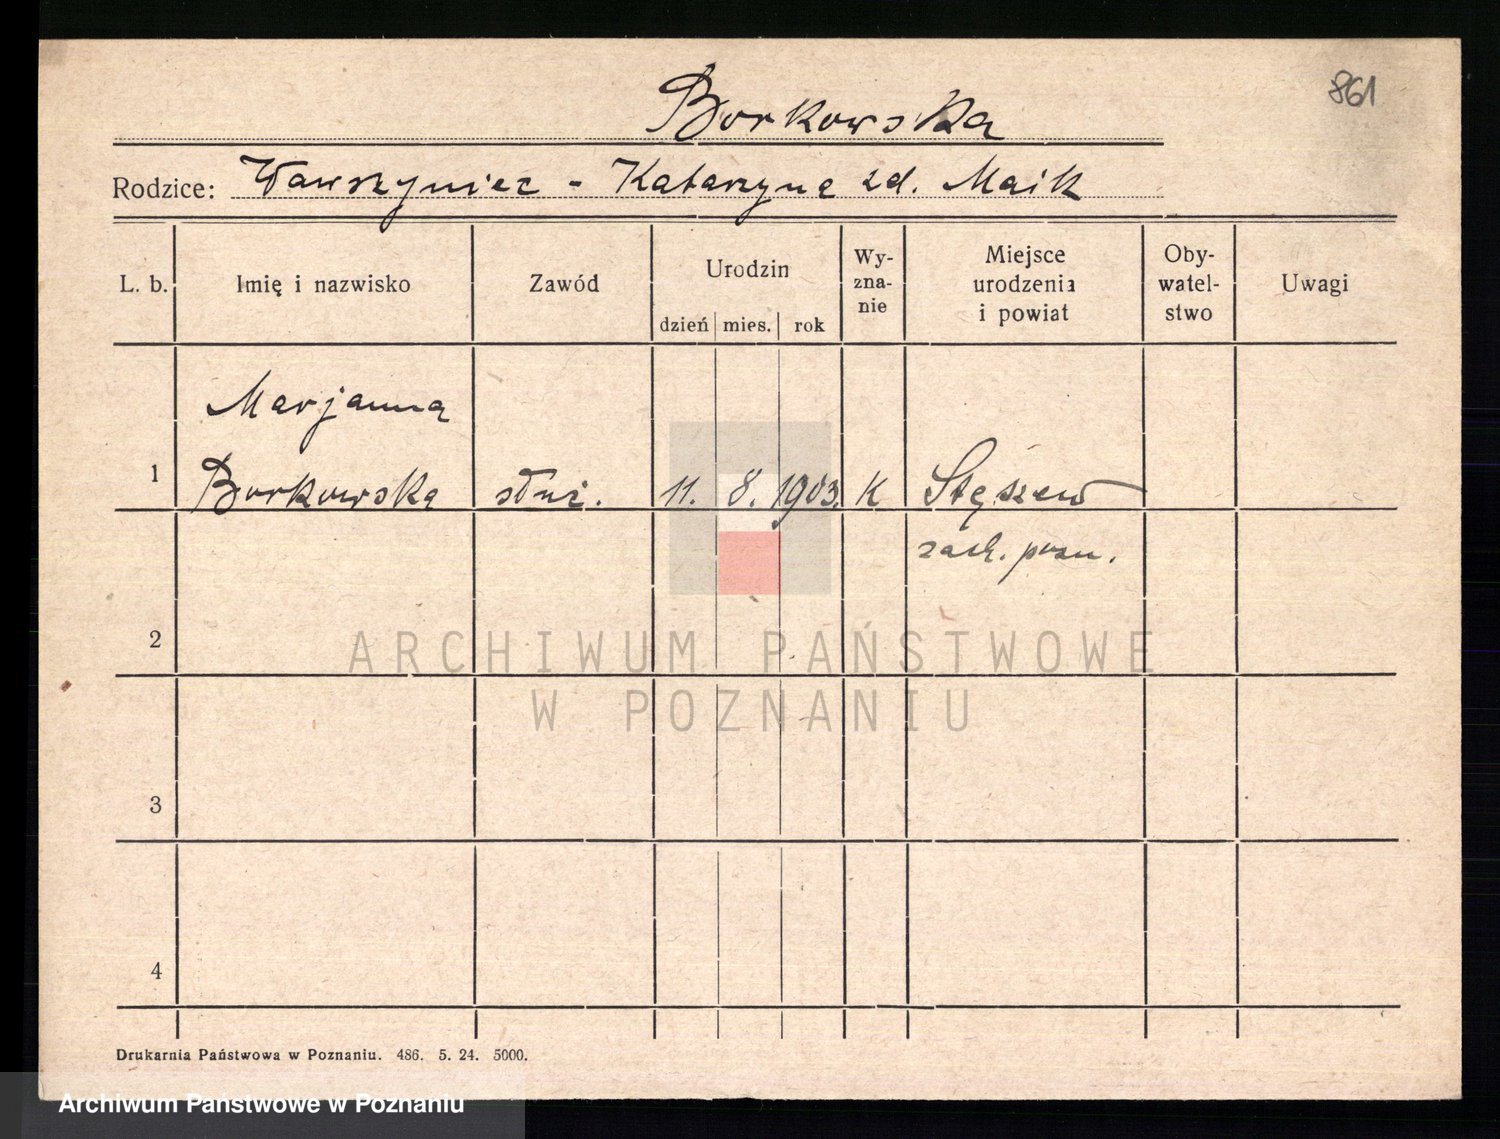 861
Borkowska
Rodzice: Wawrzyniec - Katarzyna zd. Maik
L. b. Imię i nazwisko Zawód Urodzin dzień mies. rok Wy-zna-nie Miejsce urodzenia i powiat Oby-watel-stwo Uwagi
Marjanna
1 Borkowska służ. 11. 8. 1903. K Stęszew
zach. pozn.
2
ARCHIWUM PAŃSTWOWE
W POZNANIU
3
4
Drukarnia Państwowa w Poznaniu. 486. 5. 24. 5000.
Archiwum Państwowe w Poznaniu